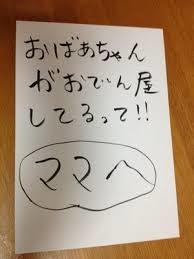 おばあちゃん
がおでん屋
してるって!!
ママへ